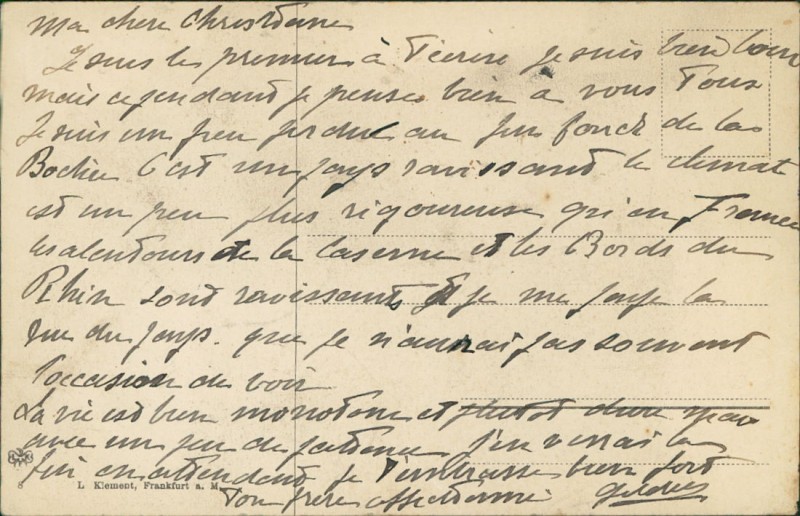 Ma chere Christiane
Je suis le premier à t'ecrire je suis bien loin
mais cependant je pense bien a vous tous
Je suis un peu perdue au fin fond de la
Bochie C'est un pays ravissant le climat
est un peu plus rigoureuse qu'en France
les alentours de la Caserne et les Bords du
Rhin sont ravissants et je me paye la
vue du pays. que je n'aurai pas souvent
l'occasion de voir
La vie est bien monotone et plutot dure mais
avec un peu de patience j'en verrai la
fin en attendant je t'embrasse bien fort
Ton frere affectionné
8 L Klement, Frankfurt a. M.